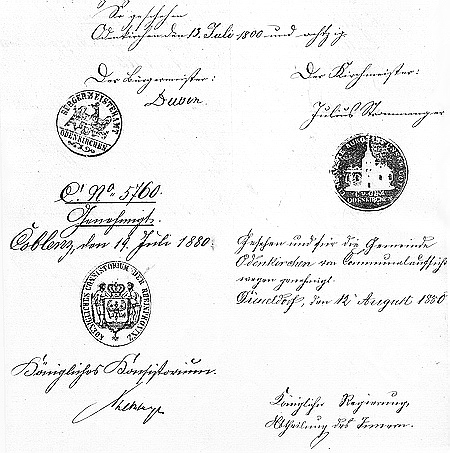 So geschehen
Odenkirchen den 13. Juli 1800 und achtzig.
Der Bürgermeister:
Duven.
BÜRGERMEISTERAMT
ODENKIRCHEN
Der Kirchmeister:
Julius
ODENKIRCHEN
C. No. 5760.
Genehmigt.
Coblenz, den 19. Juli 1880.
KOENIGLICHES CONSISTORIUM DER RHEINPROVINZ
Königliches Konsistorium.
Gesehen und für die Gemeinde
Odenkirchen von Communalaufsichts
wegen genehmigt.
Düsseldorf, den 12 August 1880
Königliche Regierung,
Abtheilung des Innern.